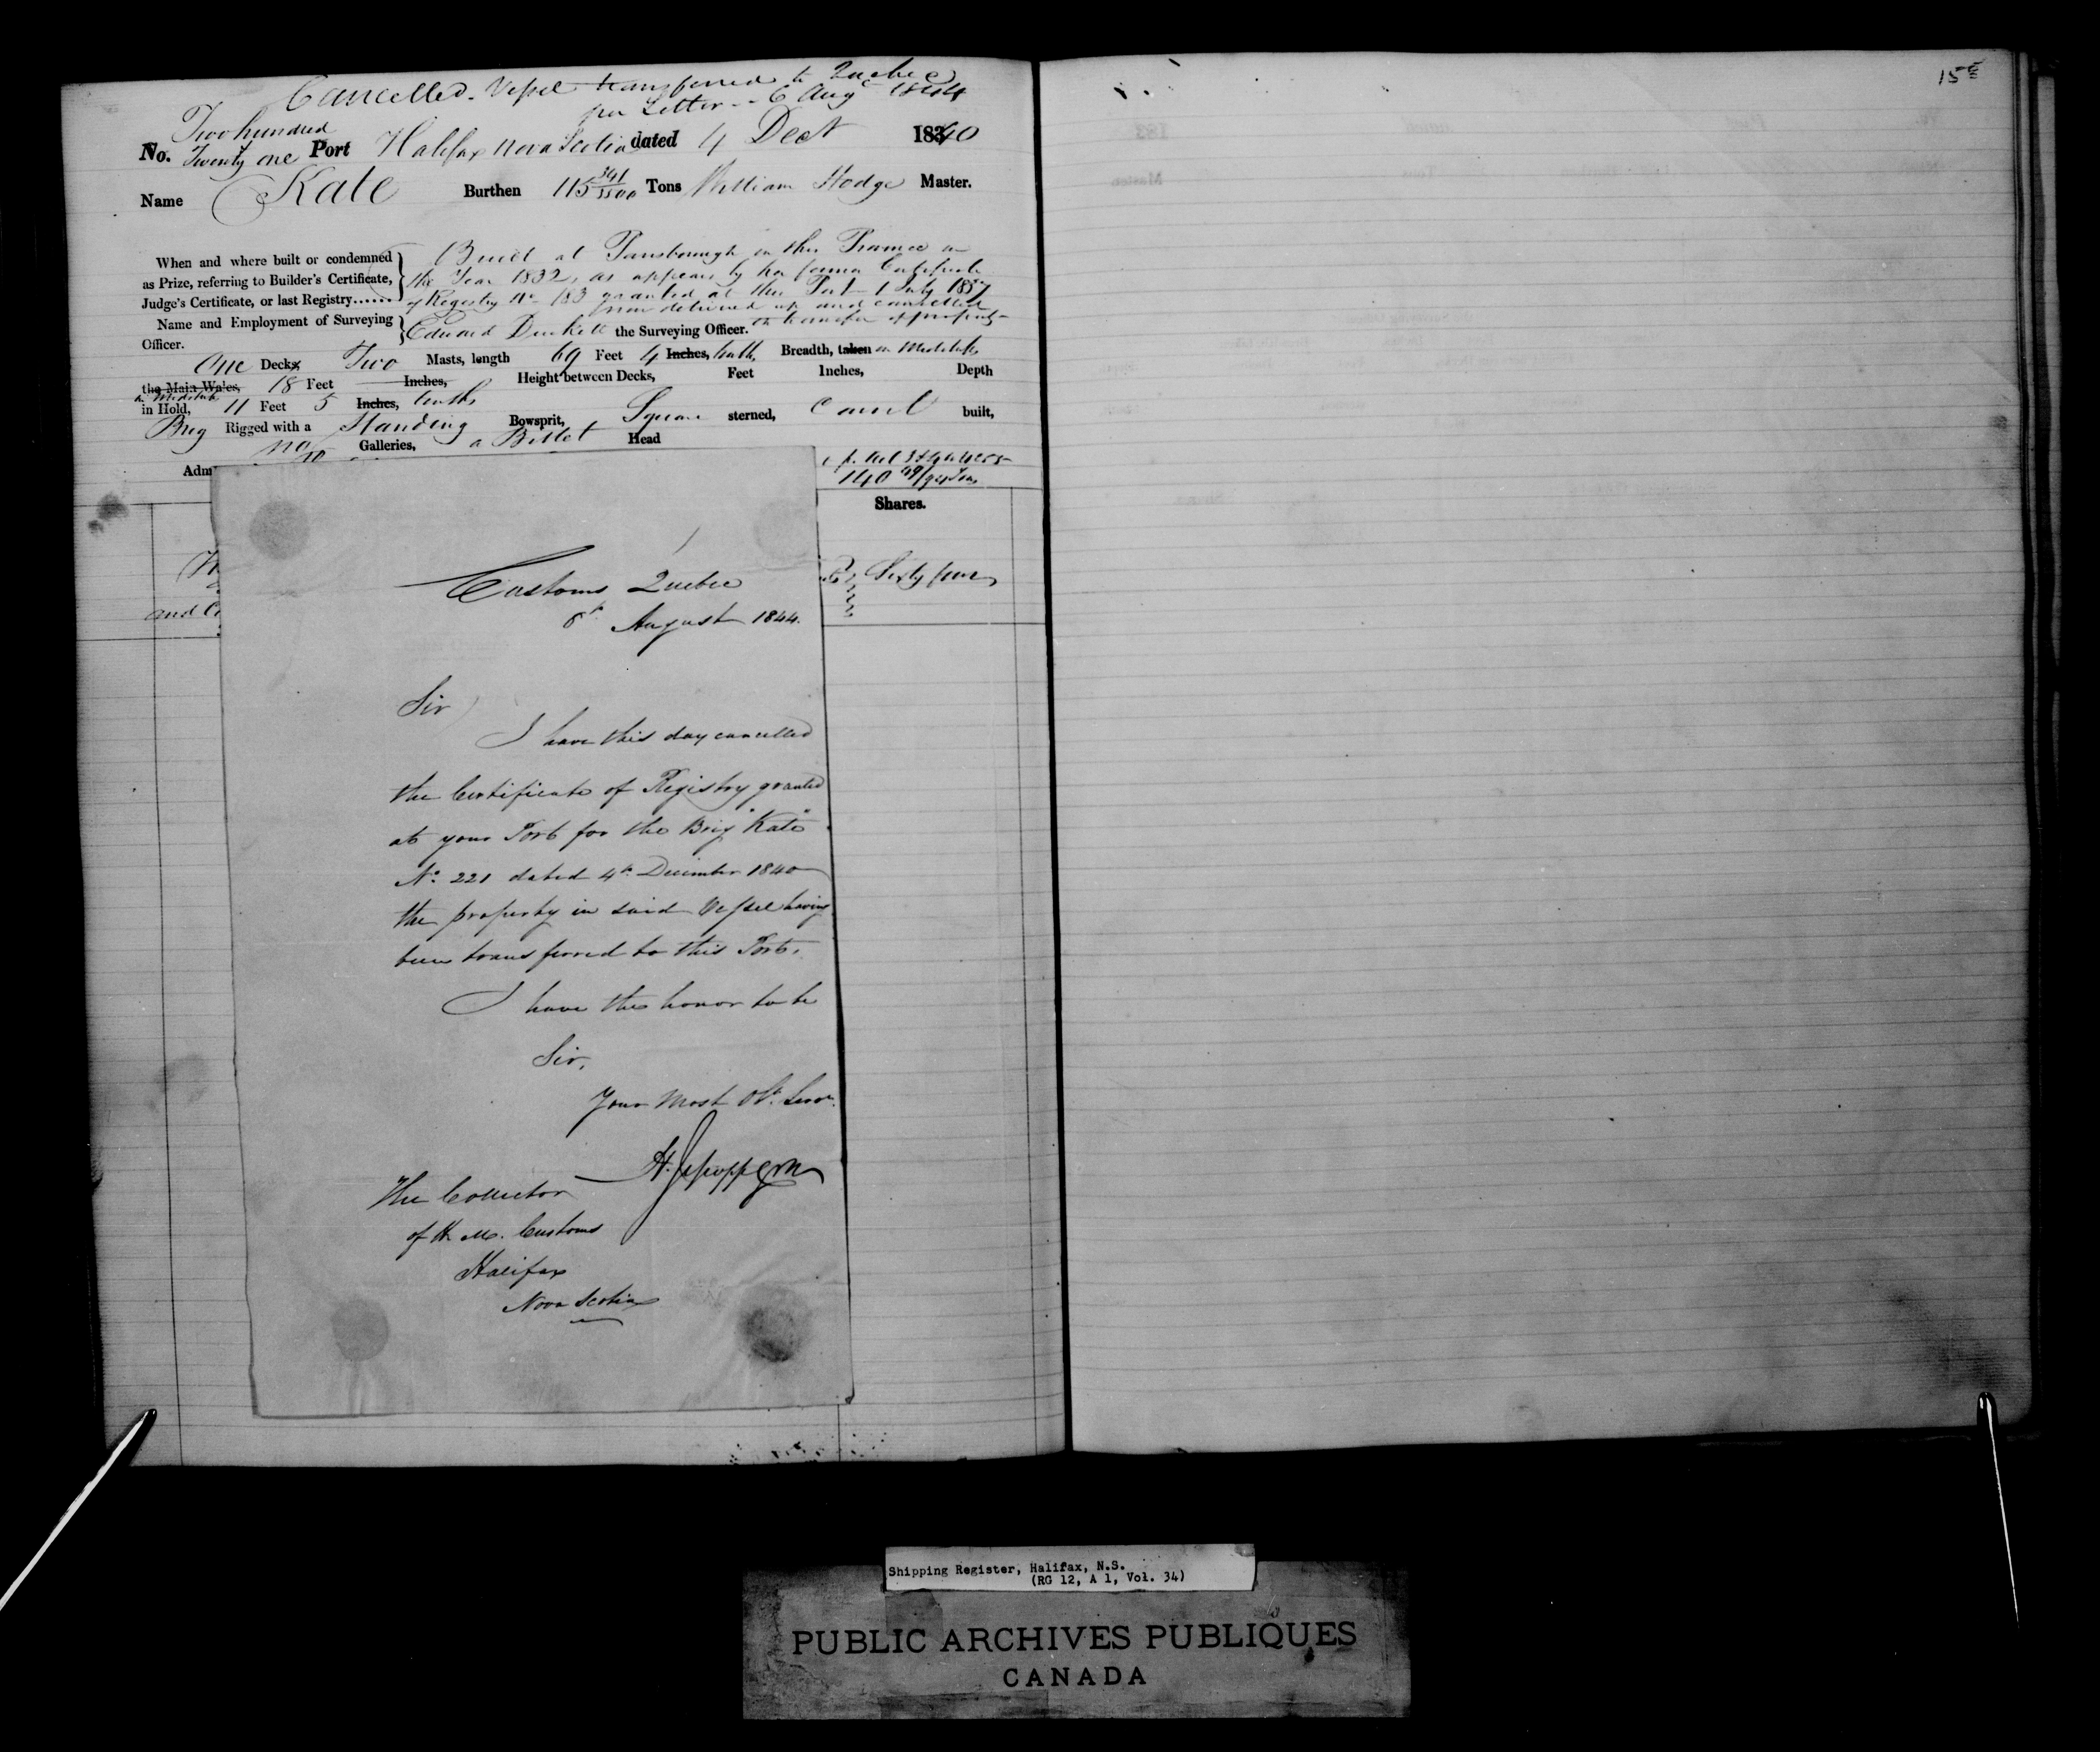 Cancelled. Vessel transferred to Quebec
per Letter - 6 Augt 1844
Two hundred
No. Twenty one Port Halifax Nova Scotia dated 4 Decr 18340
Name Kate Burthen 115 341/3500 Tons William Hodge Master.
When and where built or condemned
as Prize, referring to Builder's Certificate,
Judge's Certificate, or last Registry......
Built at Parrsborough in this Province in
the Year 1832, as appears by her former Certificate
of Registry No 183 granted at this Port 1 July 1837
now delivered up and cancelled
on transfer of property
Name and Employment of Surveying
Officer.
Edward Duckett the Surveying Officer.
One Decks Two Masts, length 69 Feet 4 Inches, tenths Breadth, taken in Midships
the Main Wales, 18 Feet Inches, Height between Decks, Feet Inches, Depth
in Midships
in Hold, 11 Feet 5 Inches, tenths
Brig Rigged with a Standing Bowsprit, Square sterned, Carvel built,
no Galleries, a Billet Head
Adm
140 Tons
Shares.
Sixty four
and
Customs Quebec
6t August 1844.
Sir
I have this day cancelled
the Certificate of Registry granted
at your Port for the Brig "Kate"
No. 221 dated 4th December 1840
the property in said Vessel having
been transferred to this Port.
I have the honor to be
Sir,
Your Most Obt. Servt.
The Collector
of H. M. Customs
Halifax
Nova Scotia
15
Shipping Register, Halifax, N.S.
(RG 12, A 1, Vol. 34)
PUBLIC ARCHIVES PUBLIQUES
CANADA